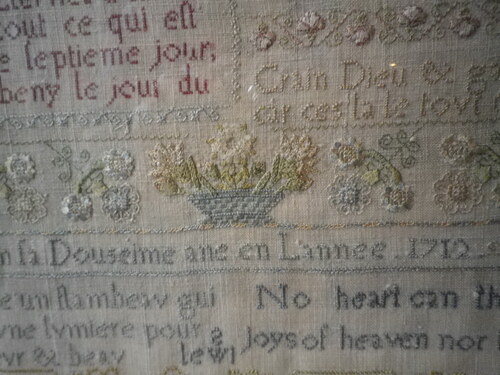 tout ce qui est
e septieme jour,
beny le jour du
Crain Dieu &
car ces la le tout
n sa Douseime ane en L'annee. 1719
e un flambeau qui
une lumiere pour
& beau
No heart can th
Joys of heaven nor